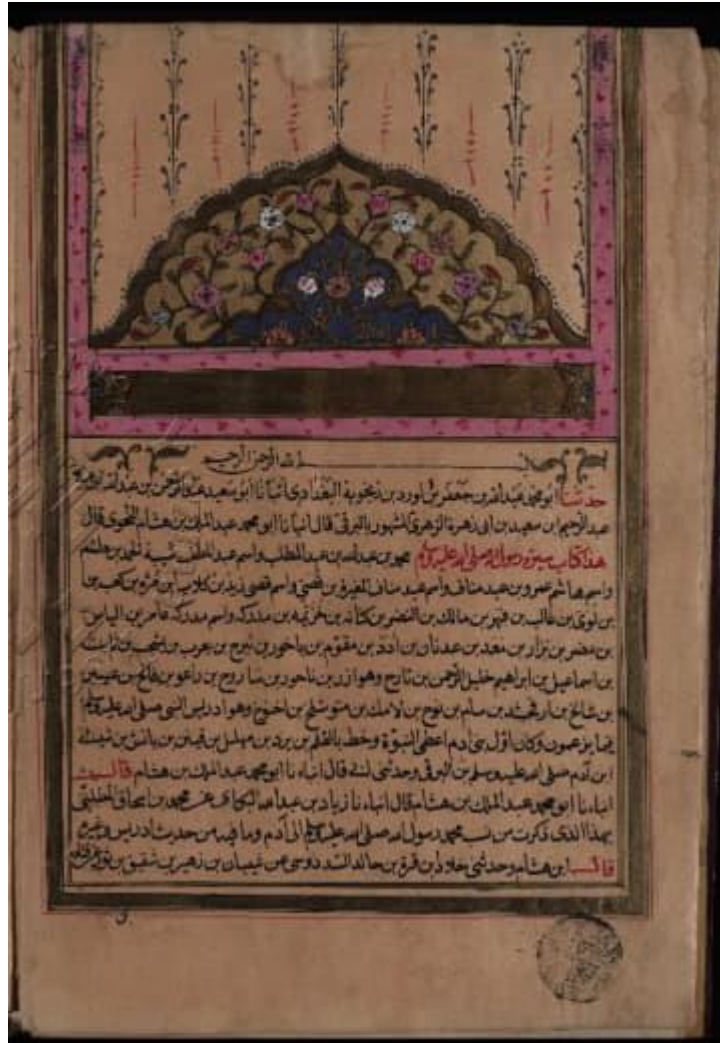 بسم الله الرحمن الرحيم
حدثنا ابو محمد عبدالله بن جعفر بن الورد بن زنجوية البغدادى انبأنا ابو سعيد عبد الرحمن بن عبدالله بن
عبد الرحيم بن سعيد بن ابى زهرة الزهرى المشهور بالبرقى قال انبأنا ابو محمد عبد الملك بن هشام النحوى قال
هذا كتاب سيرة رسول الله صلى الله عليه وسلم محمد بن عبدالله بن عبد المطلب واسم عبد المطلب شيبة الحمد بن هاشم
واسم هاشم عمرو بن عبد مناف واسم عبد مناف المغيرة بن قصى واسم قصى زيد بن كلاب بن مرة بن كعب بن
بن لوى بن غالب بن فهر بن مالك بن النضر بن كنانه بن خزيمه بن مدركه واسم مدركه عامر بن الياس
بن مضر بن نزار بن معد بن عدنان بن ادد بن مقوم بن ناحور بن تيرح بن يعرب بن يشجب بن نابت
بن اسماعيل بن ابراهيم خليل الرحمن بن تارح وهو ازر بن ناحور بن ساروح بن راعو بن فالخ بن عيبر
بن شالخ بن ارفخشد بن سام بن نوح بن لامك بن متوشلخ بن اخنوخ وهو ادريس النبى صلى الله عليه وسلم
فيما يزعمون وكان اول بنى ادم اعطى النبوة وخط بالقلم بن يرد بن مهليل بن قينن بن يانش بن شيث
ابن آدم صلى الله عليه وسلم بن البرقى وحدثنى قال انباءنا ابو محمد عبد الملك بن هشام قال
انباءنا ابو محمد عبد الملك بن هشام قال انباءنا زياد بن عبدالله البكاى عن محمد بن اسحاق المطلبى
بهذا الذى ذكرت من نسب محمد رسول الله صلى الله عليه وسلم الى آدم وما فيه من حديث ادريس وغيره
قال ابن هشام وحدثنى خلاد بن قرة بن خالد السدوسى عن شيبان بن زهير بن شقيق بن ثور